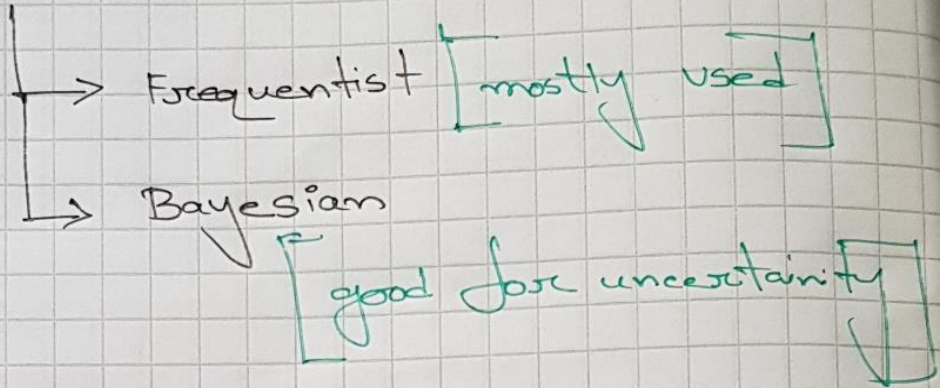 → Frequentist [mostly used]
→ Bayesian
[good for uncertainity]